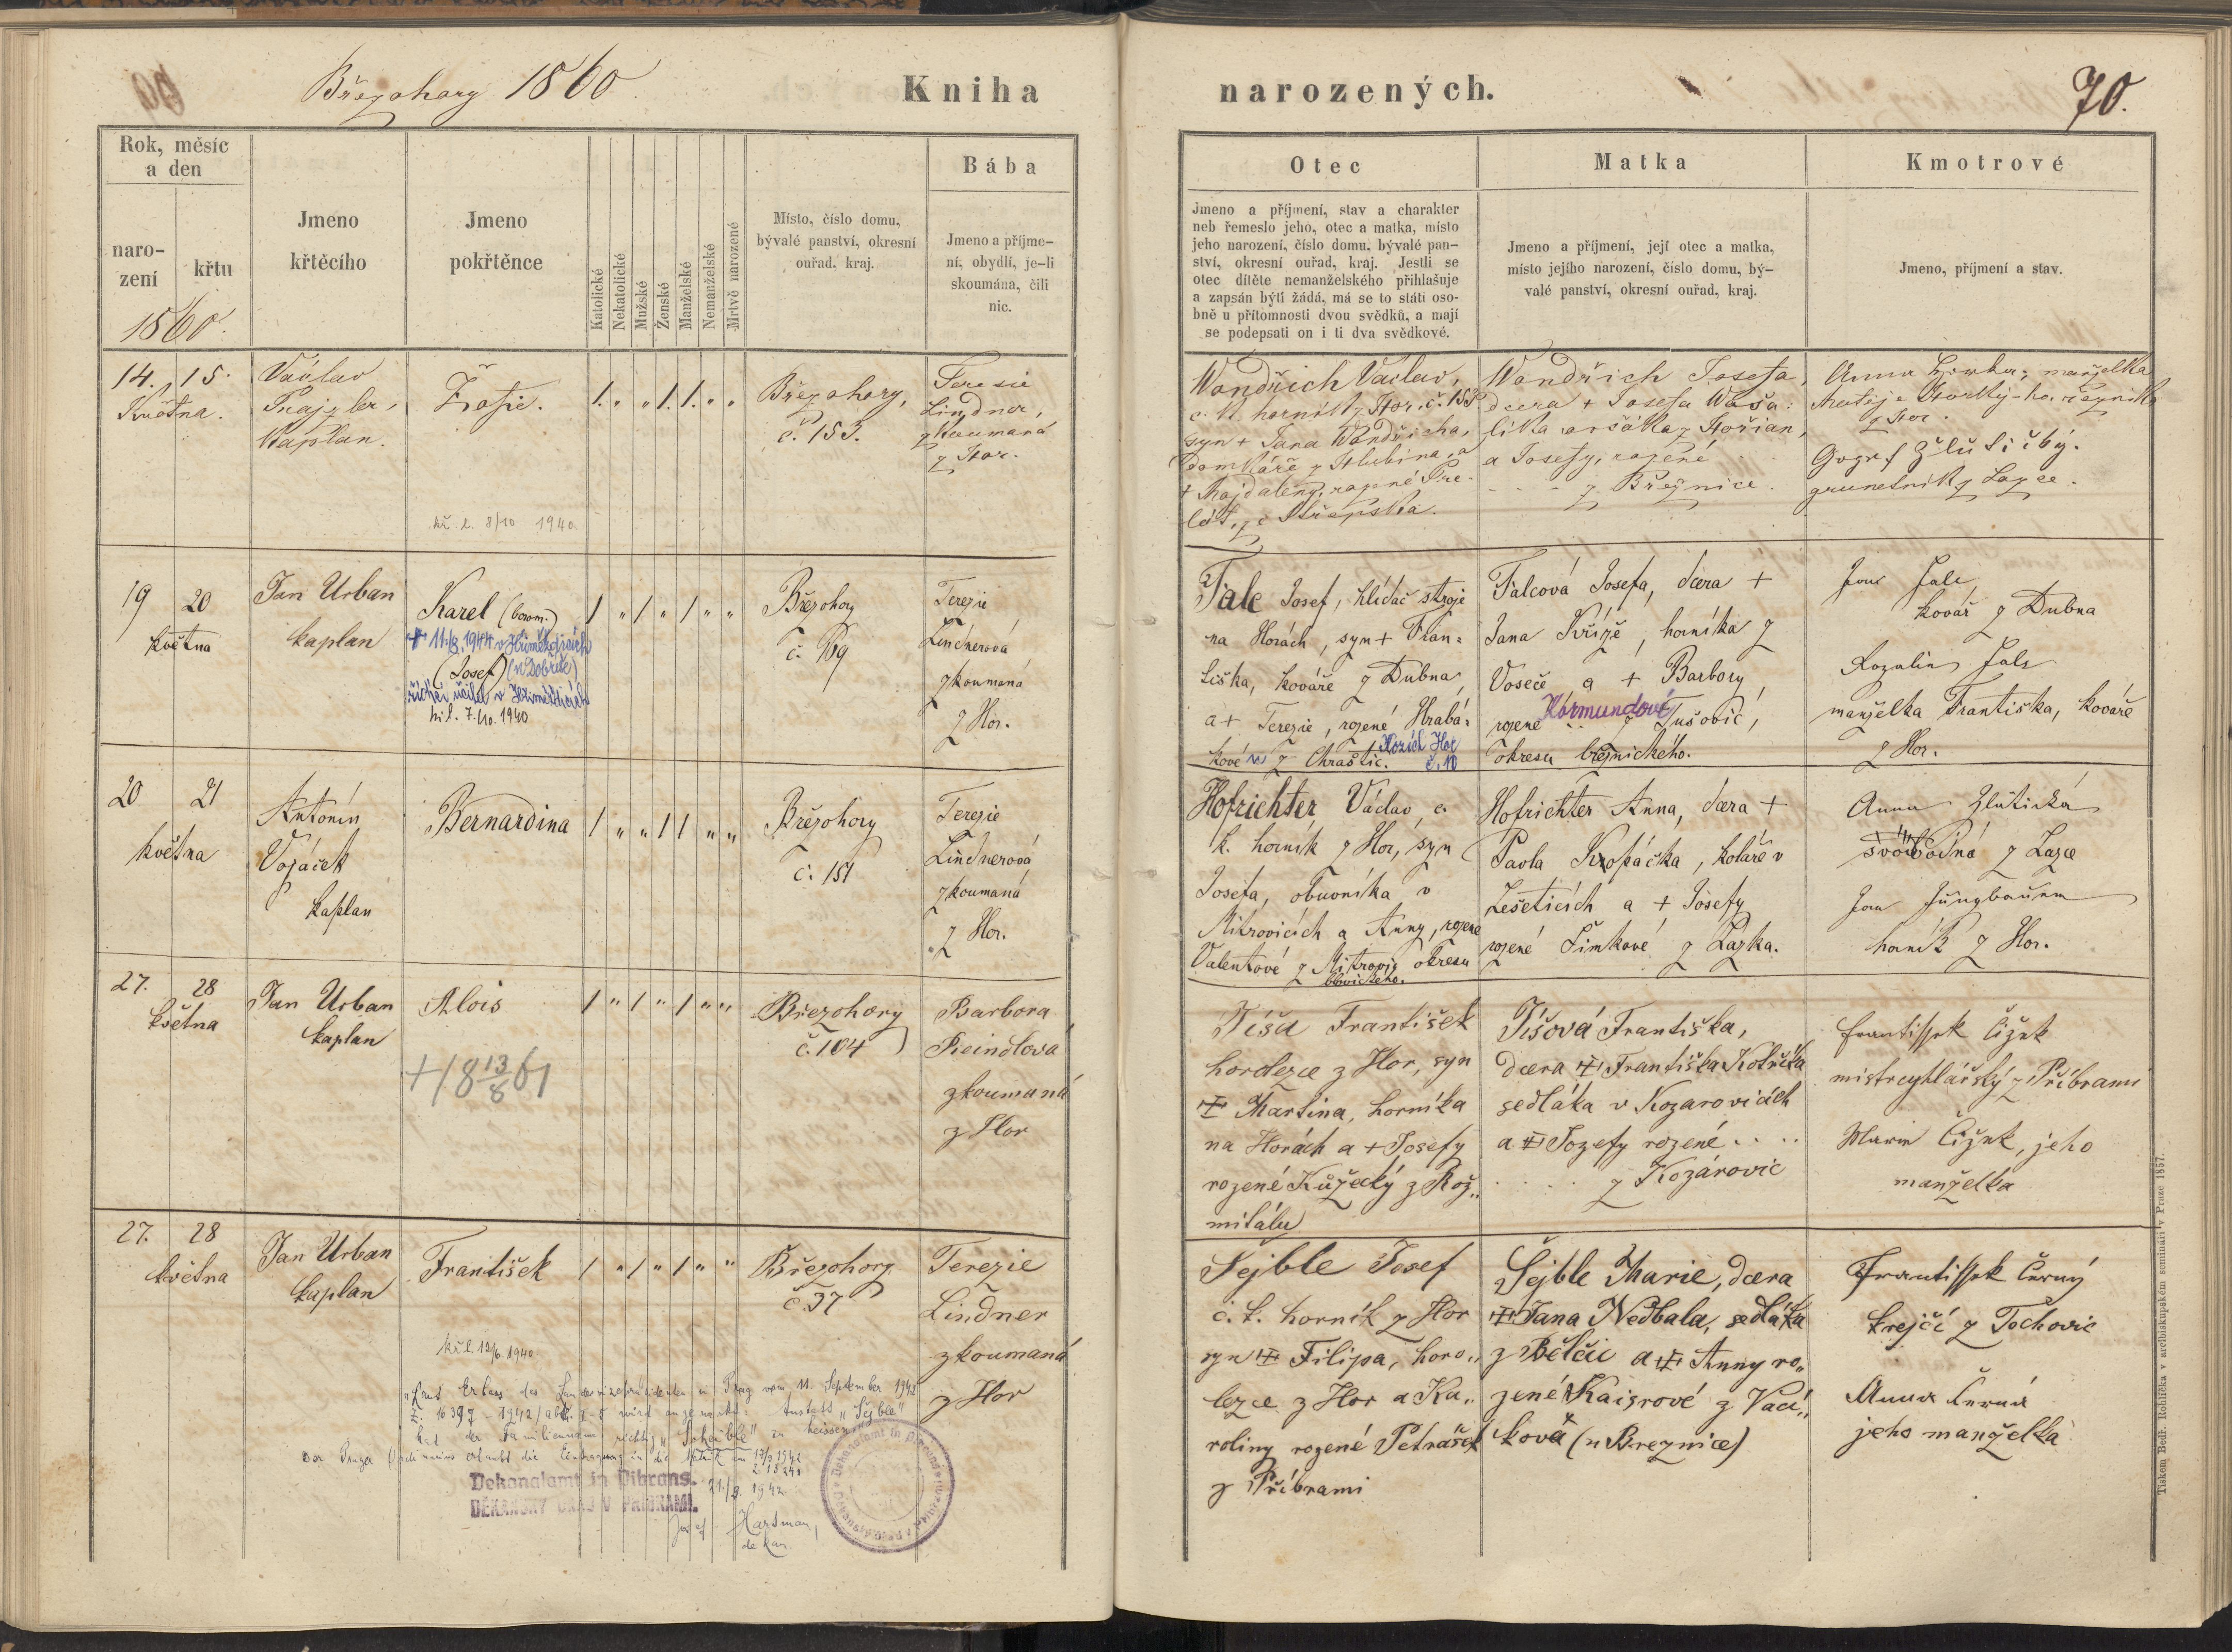 Březohory 1860.
Kniha
narozených.
70.
Rok, měsíc
a den
naro-
zení
křtu
1860.
Jmeno
křtěcího
Jmeno
pokřtěnce
Katolické
Nekatolické
Mužské
Ženské
Manželské
Nemanželské
Mrtvě narozené
Místo, číslo domu,
bývalé panství, okresní
ouřad, kraj.
Bába
Jmeno a příjme-
ní, obydlí, je-li
skoumána, čili
nic.
Otec
Jmeno a příjmení, stav a charakter
neb řemeslo jeho, otec a matka, místo
jeho narození, číslo domu, bývalé pan-
ství, okresní ouřad, kraj. Jestli se
otec dítěte nemanželského přihlašuje
a zapsán býti žádá, má se to státi oso-
bně u přítomnosti dvou svědků, a mají
se podepsati on i ti dva svědkové.
Matka
Jmeno a příjmení, její otec a matka,
místo jejího narození, číslo domu, bý-
valé panství, okresní ouřad, kraj.
Kmotrové
Jmeno, příjmení a stav.
14. 15.
Května.
Václav
Prajzler,
Kaplan.
Žofie.
kř. l. 8/10 1940.
1. „ „ 1. 1. „ „
Březohory,
č. 153.
Teresie
Lindner,
zkoumaná
z Hor.
Wondřich Václav,
c. k. horník z Hor. č. 153
syn + Jana Wondřicha,
domkáře z Hlubina, a
+ Majdaleny, rozené
Wondřich Josefa,
dcera + Josefa
a Josefy, rozené
. . . z Březnice.
Anna manželka
Matěje
z Hor
Josef Žlutický.
gruntník z Lazce.
19 20
května
Jan Urban
kaplan
Karel (borom.)
+ 11./3. 1944 v Hříměždicích
(Josef) (u Dobříše)
řídící učitel v Hříměždicích
kř. l. 7./10. 1940
/ „ / „ / „ „
Březohory
č. 169
Terezie
Lindnerová
zkoumaná
z Hor.
Falc Josef, hlídač stroje
na Horách, syn + Fran=
tiška, kováře z Dubna,
a + Terezie, rozené Hrabá=
kové z Chraštic. Kozích Hor
č. 10
Falcová Josefa, dcera +
Jana Kříže, horníka z
Voseče a + Barbory,
rozené Kórmundové z Tušovic,
okresu březnického.
Jan Falc
kovář z Dubna
Rozalia Falc
manželka Františka, kováře
z Hor.
20 21
května
Antonín
Vojáček
kaplan
Bernardina
/ „ „ / / „ „
Březohory
č. 151
Terezie
Lindnerová
zkoumaná
z Hor.
Hofrichter Václav, c.
k. horník z Hor, syn
Josefa, obuvníka v
Mitrovicích a Anny, rozené
Valentové z Mitrovic okresu
Hofrichter Anna, dcera +
Pavla Kropáčka, koláře v
Lešeticích a + Josefy
rozené Šimkové z Lazka.
Anna Žlutická
svobodná z Lazce
Jan Jungbauer
horník z Hor.
27. 28
května
Jan Urban
kaplan
Alois
+ 18 13/8 61
/ „ / „ / „ „
Březohory
č. 104
Barbora
Reindlová
zkoumaná
z Hor
Tíša František
horolezce z Hor, syn
+ Martina, horníka
na Horách a + Josefy
rozené z Rož„
mitálu
Tíšová Františka,
dcera + Františka Kotrčka
sedláka v Kozarovicích
a + Jozefy rozené . . . .
. . . . z Kozárovic
Frantissek Čížek
mistr cyhlářský z Příbrami
Marie Čížek, jeho
manželka
27. 28
května
Jan Urban
kaplan
František
kř. l. 12/6. 1940.
/ „ / „ / „ „
Březohory
č. 37
Terezie
Lindner
zkoumaná
z Hor
„Laut Erlass des Landesvizepräsidenten in Prag vom 11. September 1942
anstatt „Šejble"
hat der Familienname richtig „Scheible" zu heissen."
Dekanalamt in Pibrans.
21./9. 1942
DĚKANSKÝ ÚŘAD V PŘÍBRAMI.
Josef Hartman,
dekan.
Šejble Josef
c. k. horník z Hor
syn + Filipa, horo„
lezce z Hor a Ka„
roliny rozené Petrášek
z Příbrami
Šejble Marie, dcera
+ Jana Nedbala, sedláka
z Bělčic a + Anny ro„
zené Kaisrové z Vací„
kova (u Breznice)
Frantissek Černý
krejčí z Tochovic
Anna Černá
jeho manželka
Tiskem Bedř. Rohlíčka v arcibiskupském semináři v Praze 1857.